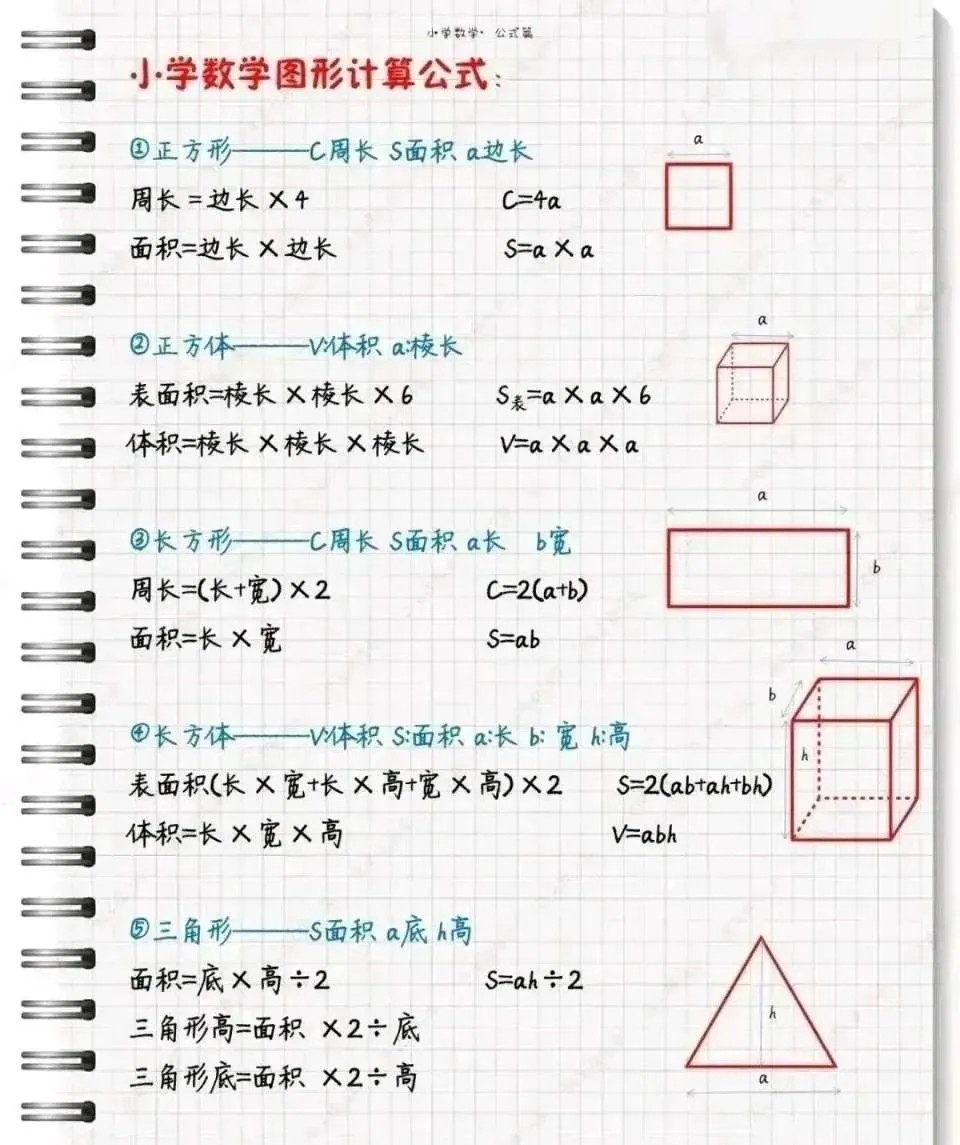 小学数学· 公式篇
小学数学图形计算公式：
①正方形———C周长 S面积 a边长
周长=边长×4 C=4a
面积=边长×边长 S=a×a
a
②正方体———V:体积 a:棱长
表面积=棱长×棱长×6 S表=a×a×6
体积=棱长×棱长×棱长 V=a×a×a
a
③长方形———C周长 S面积 a长 b宽
周长=(长+宽)×2 C=2(a+b)
面积=长×宽 S=ab
a
b
④长方体———V:体积 S:面积 a:长 b: 宽 h:高
表面积(长×宽+长×高+宽×高)×2 S=2(ab+ah+bh)
体积=长×宽×高 V=abh
a
b
h
⑤三角形———S面积 a底 h高
面积=底×高÷2 S=ah÷2
三角形高=面积 ×2÷底
三角形底=面积 ×2÷高
h
a